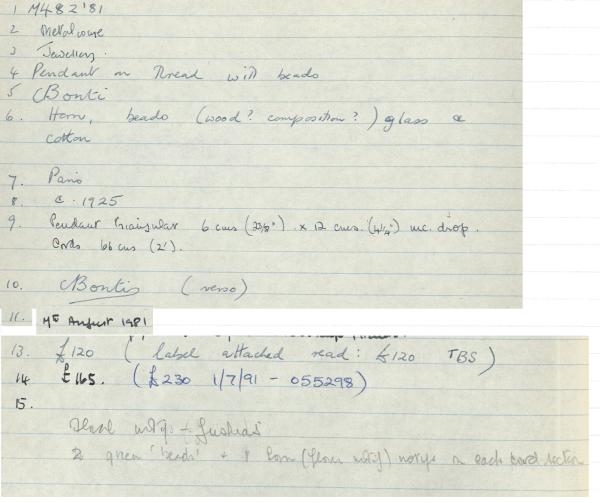 1 M48Z '81
2 Metalware
3 Jewellery.
4 Pendant on Thread with beads
5 CBonti
6. Horn, beads (wood? composition?) glass &
cotton
7. Paris
8. c. 1925
9. Pendant triangular 6 cms (23/8") x 12 cms. (4¼") inc. drop.
Cords 66 cms (2').
10. CBontis (verso)
11. August 1981
13. £120 (label attached read: £120 TBS)
14 £165. (£230 1/7/91 - 055298)
15.
motifs
2 green 'beads' + 1 horn (flower motif) motif on each cord section